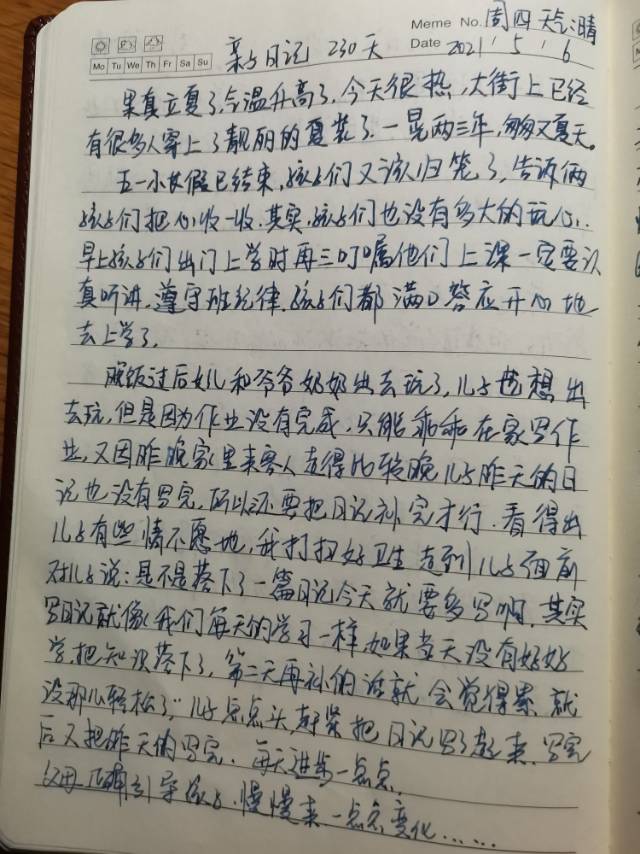 Meme No. 周四 天气:晴
Mo Tu We Th Fr Sa Su
亲子日记 230天
Date 2021 / 5 / 6
果真立夏了,气温升高了,今天很热,大街上已经
有很多人穿上了靓丽的夏装了.一晃两三年,匆匆又夏天。
五一小长假已结束,孩子们又该归笼了,告诉俩
孩子们把心收一收.其实,孩子们也没有多大的玩心.
早上孩子们出门上学时再三叮嘱他们上课一定要认
真听讲,遵守班纪律.孩子们都满口答应开心地
去上学了.
晚饭过后女儿和爷爷奶奶出去玩了,儿子也想出
去玩,但是因为作业没有完成,只能乖乖在家写作
业,又因昨晚家里来客人走得比较晚儿子昨天的日
记也没有写完,所以还要把日记补完才行.看得出
儿子有些情不愿地,我打扫好卫生走到儿子面前
对儿子说:是不是落下了一篇日记今天就要多写啊.其实
写日记就像我们每天的学习一样,如果当天没有好好
学,把知识落下了,第二天再补的话就会觉得累,就
没那么轻松了,"儿子点点头,赶紧把日记写了起来.写完
后又把昨天的写完.每天进步一点点.
父母正确引导孩子.慢慢来一点点变化......